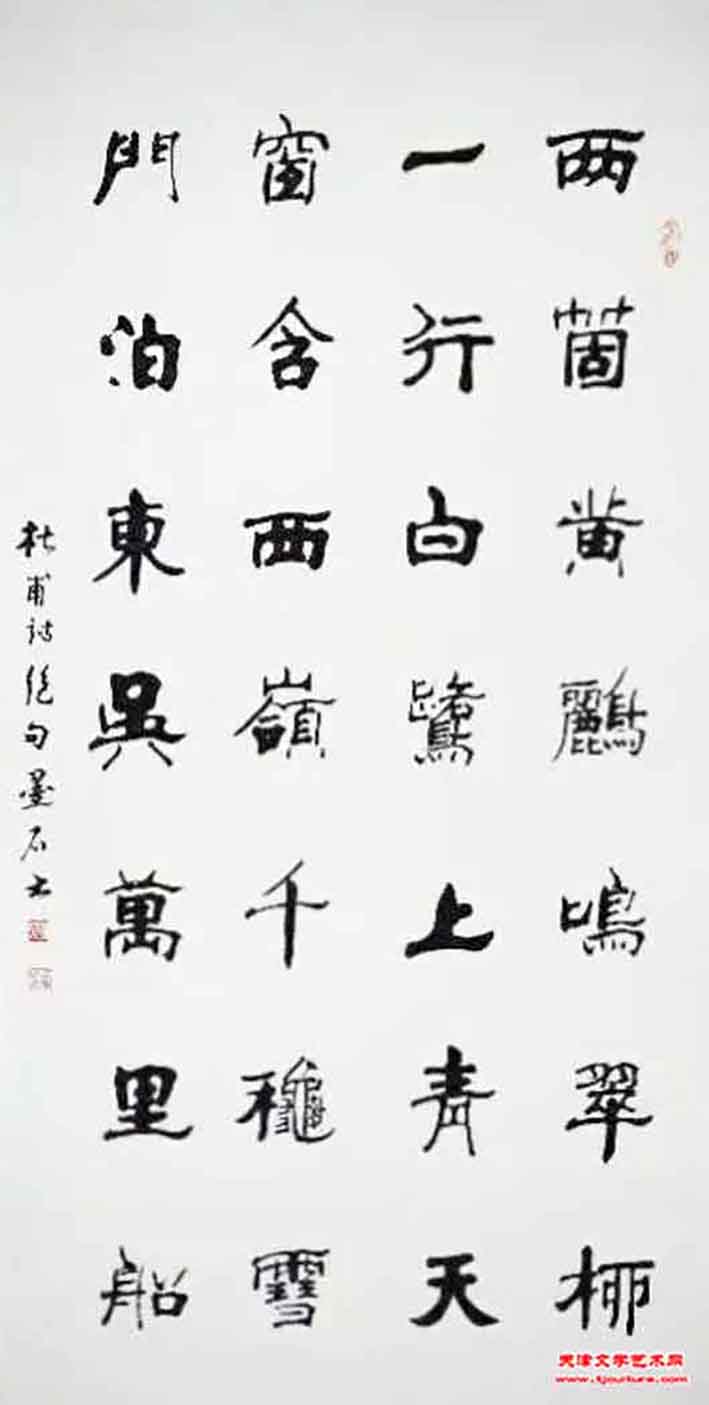 两箇黄鸝鳴翠柳
一行白鷺上青天
窗含西嶺千龝雪
門泊東吳萬里船
杜甫詩绝句墨石书
天津文学艺术网
www.tjculture.com